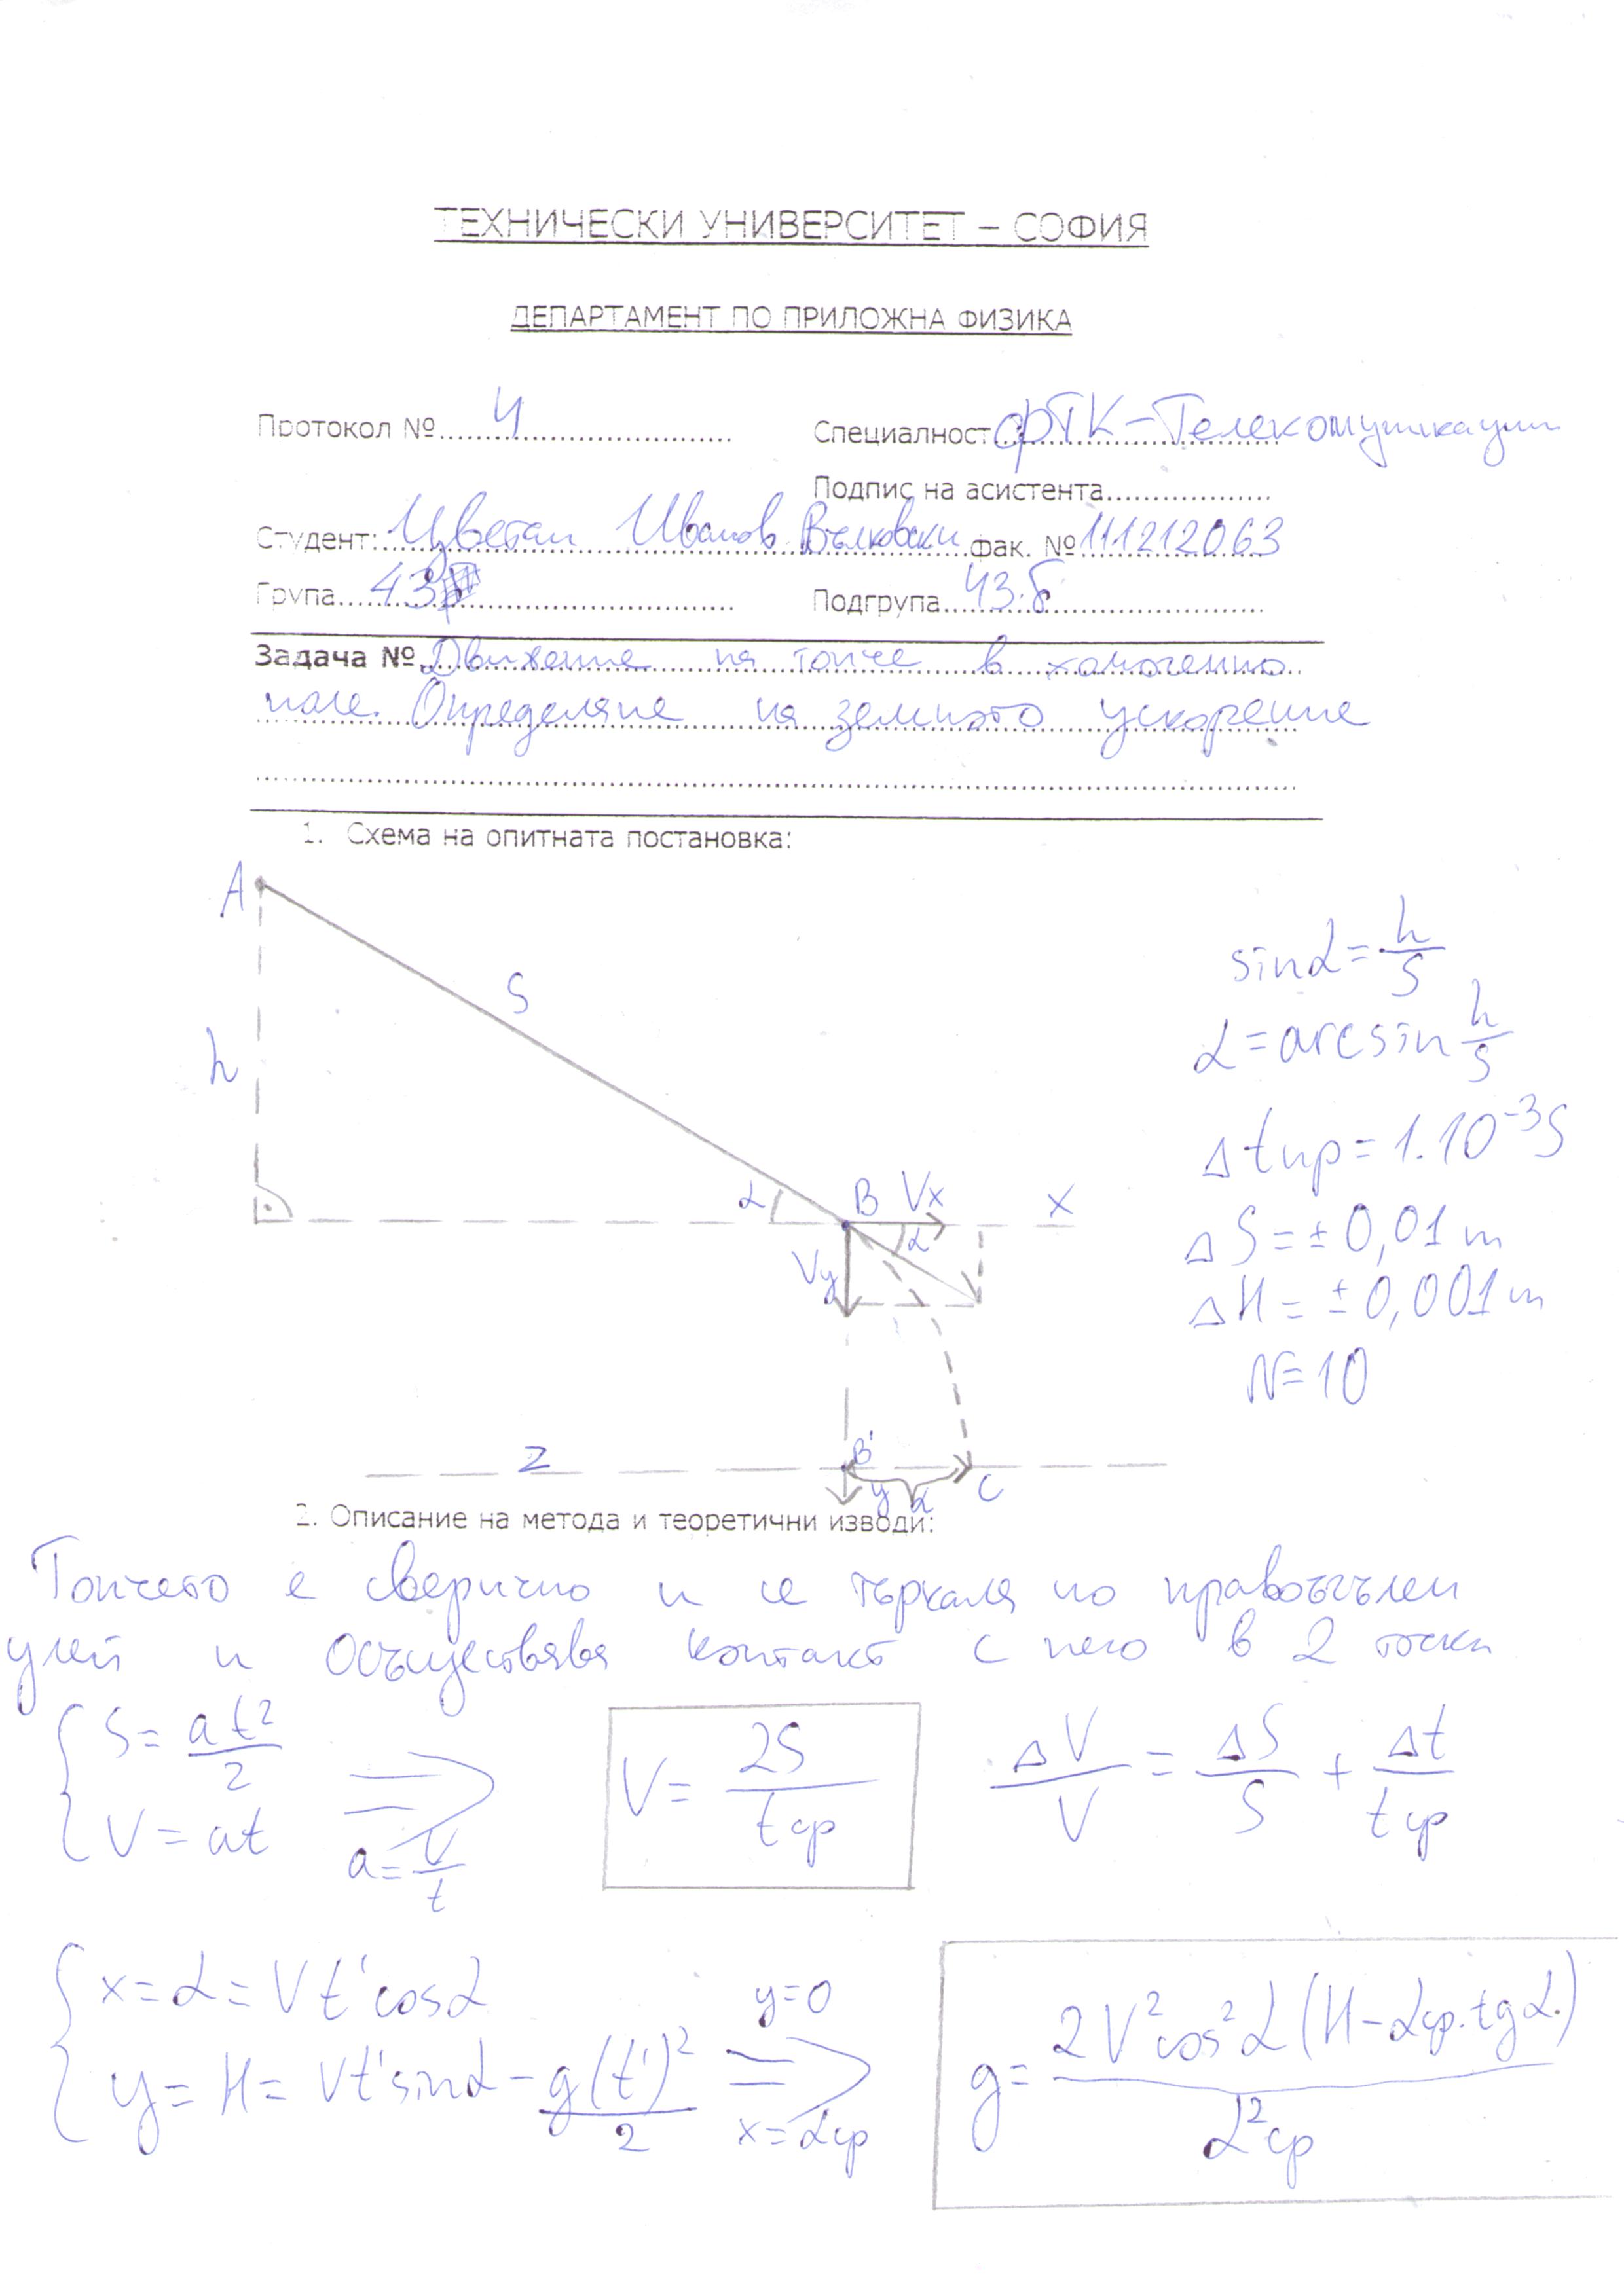 ТЕХНИЧЕСКИ УНИВЕРСИТЕТ – СОФИЯ
ДЕПАРТАМЕНТ ПО ПРИЛОЖНА ФИЗИКА
Протокол №......4......
Специалност ФТК-Телекомуникации
Подпис на асистента...................
Студент: Цветан Иванов Вълковски фак. № 111212063
Група...43
Подгрупа...43.б
Задача № Движение на топче в хомогенно
поле. Определяне на земното ускорение
1. Схема на опитната постановка:
A
S
h
α
B
Vx
x
α
Vy
z
B'
y
α
C
sinα = h/S
α = arcsin h/S
Δtпр = 1.10⁻³S
ΔS = ± 0,01 m
ΔH = ± 0,001 m
N = 10
2. Описание на метода и теоретични изводи:
Топчето е сверично и се търкаля по правоъгълен
улей и осъществява контакт с него в 2 точки
{ S = at²/2
V = at
=>
a = V/t
V = 2S/tср
ΔV/V = ΔS/S + Δt/tср
{ x = α = Vt'cosα
y = H = Vt'sinα - g(t')²/2
y=0
=>
x = αср
g = 2V²cos²α(H - αср.tgα.)/α²ср